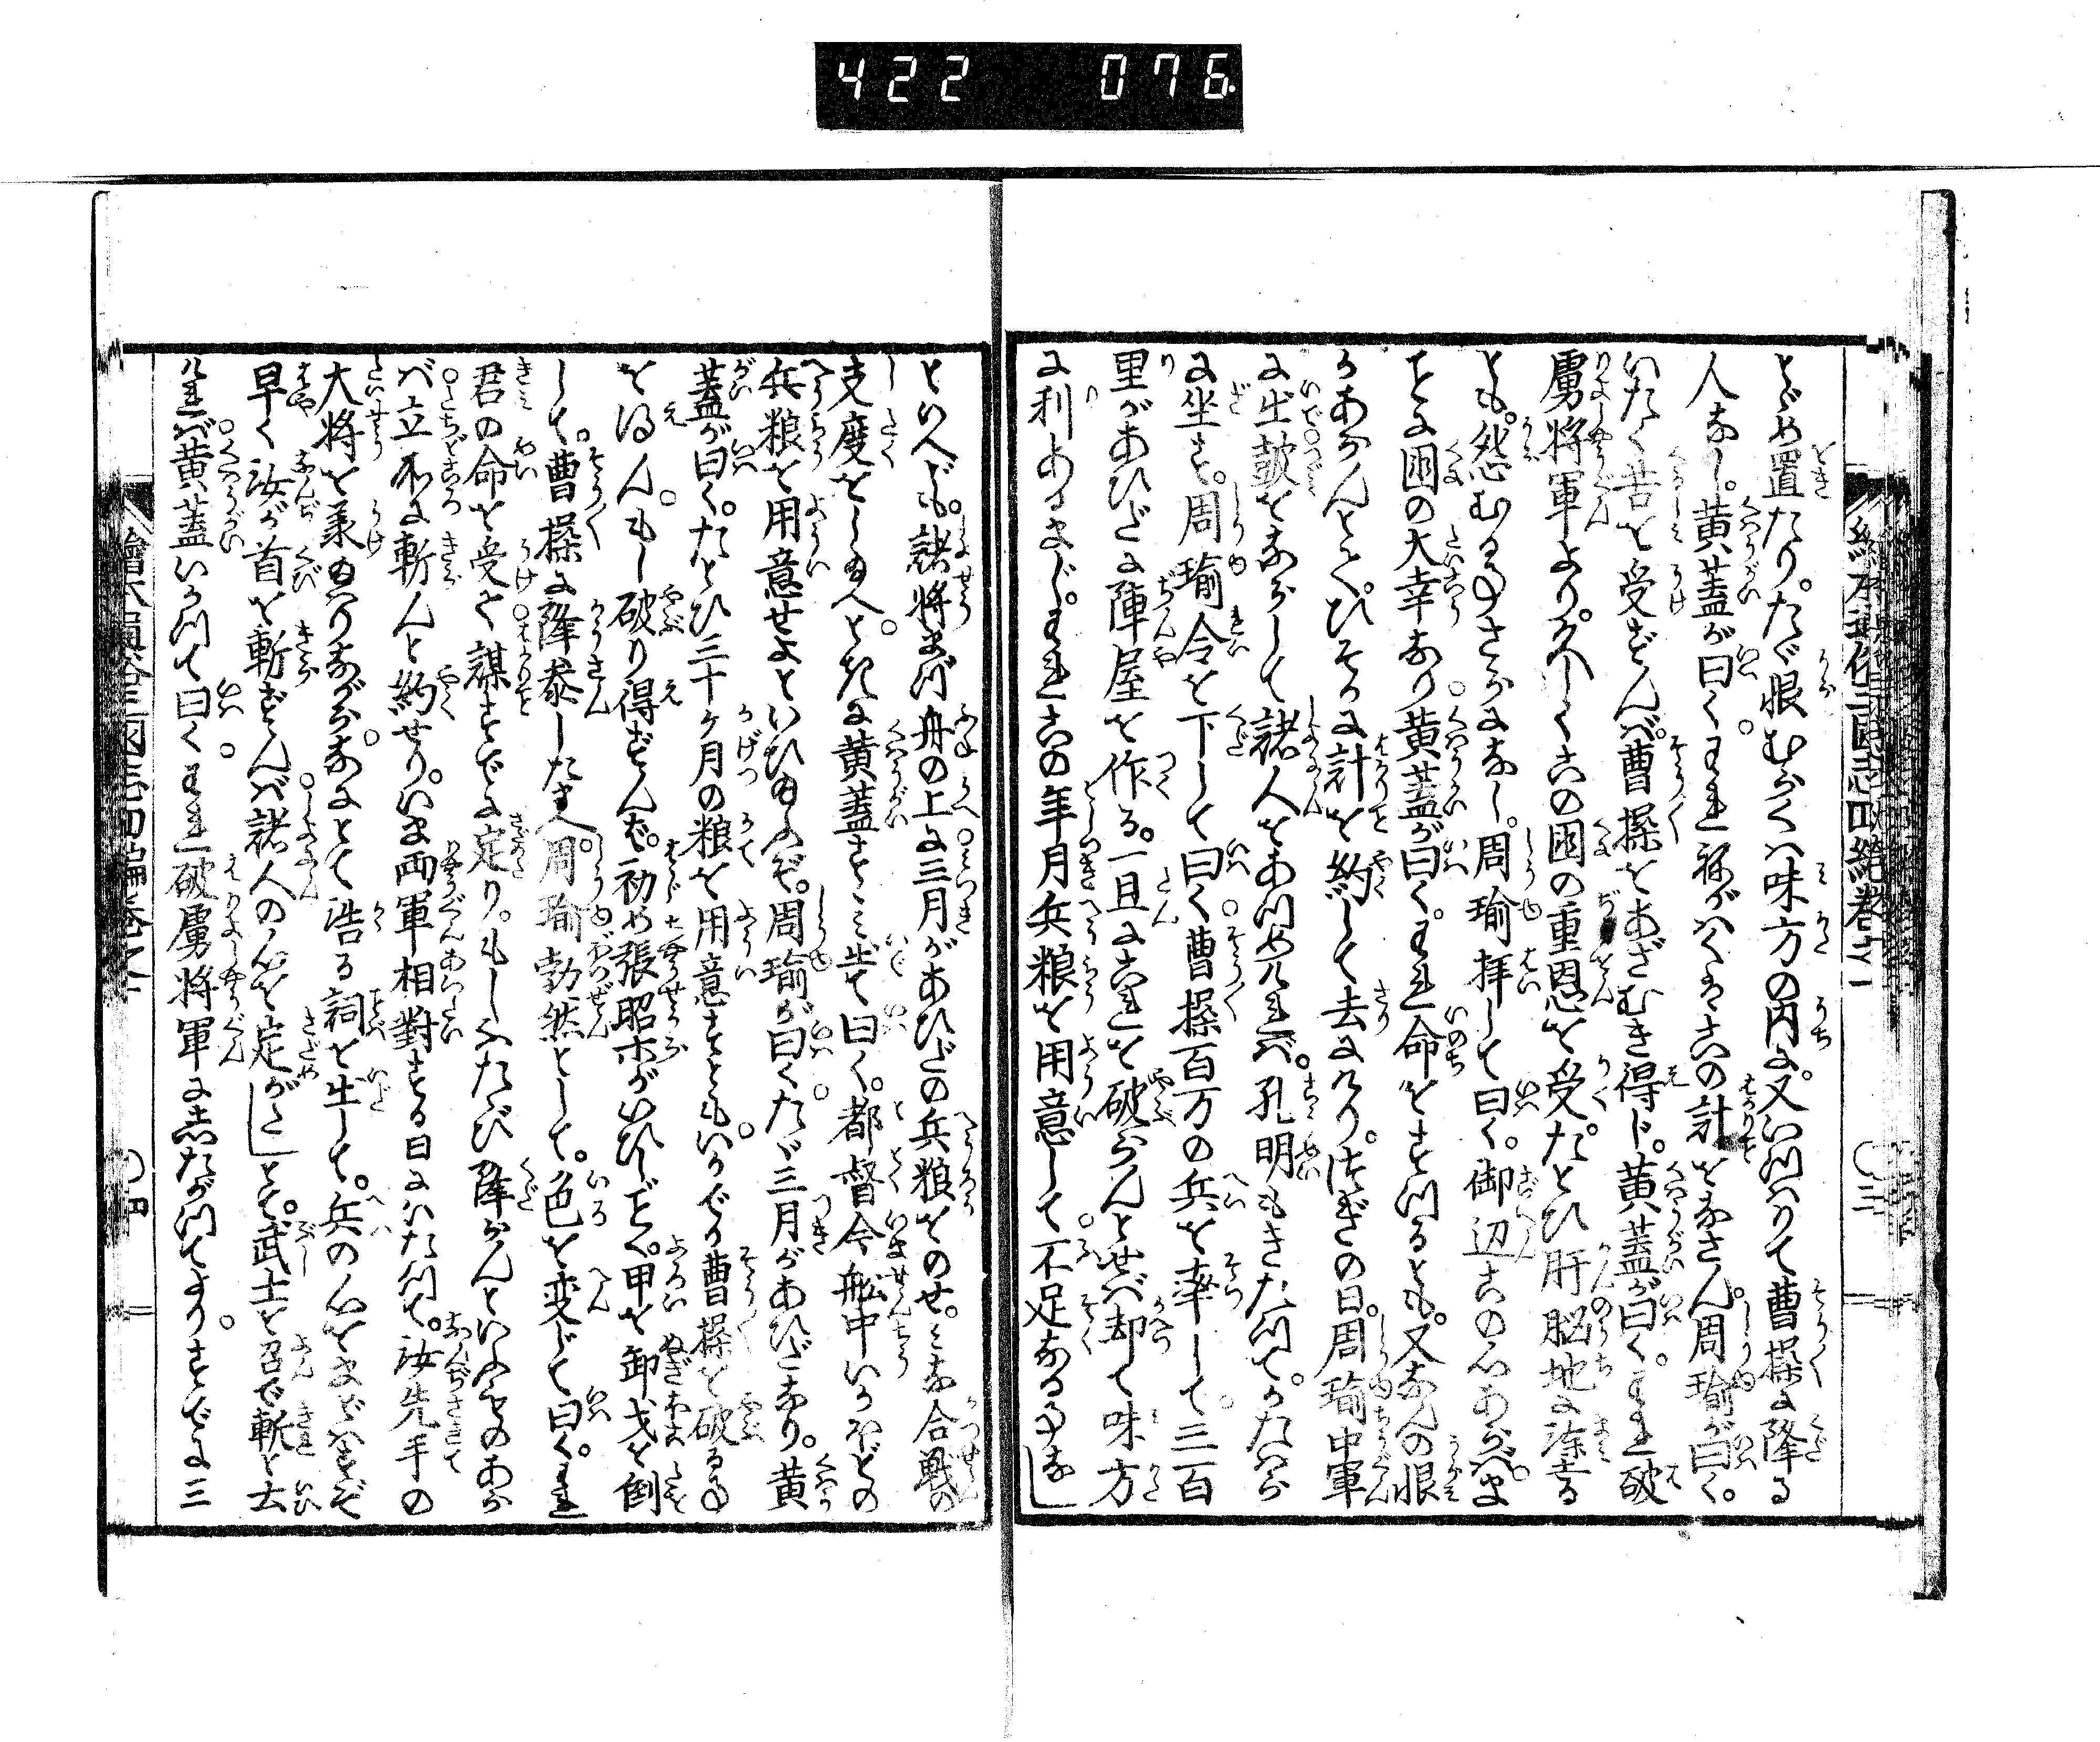 422 076
とゞめ置たり。たゞ恨むらくハ味方の内に。又いつハりて曹操に降る
人なし。黄蓋が曰く。われ移がハくハこの計をなさん。周瑜が曰く。
いたく苦を受ずんバ。曹操をあざむき得ド。黄蓋が曰く。われ破
虜将軍より。久しくこの国の重恩を受。たとひ肝脳地に塗る
とも。怨むる事さらになし。周瑜拝して曰く。御辺この心あらバ。ま
ことに国の大幸なり。黄蓋が曰く。われ命をすつるとも。又なんの恨
かあらんとて。ひそかに計を約して去にけり。次ぎの日。周瑜中軍
に出皷をならして諸人をあつめけれバ。孔明もきたつて。かたハら
に坐す。周瑜令を下して曰く。曹操百万の兵を率して。三百
里があひだに陣屋を作る。一旦にこれを破らんとせバ却て味方
に利あるまじ。われこの年月兵粮を用意して不足なる事な」
といへども。諸将まづ舟の上に三月があひだの兵粮をのせ。みな合戦の
支度をし給へ。ときに黄蓋すゝみ出て曰く。都督今舩中いかほどの
兵粮を用意せよといひ給ふぞ。周瑜が曰く。たゞ三月があひだなり。黄
蓋が曰く。たとひ三十ヶ月の粮を用意すとも。いかでか曹操を破る事
を得ん。もし破り得ずんバ。初め張昭等がいひしごとく。甲を卸戈を倒
して。曹操に降参したまへ。周瑜勃然として。色を変じて曰く。われ
君の命を受て謀すでに定り。もしふたび降らんといふものあら
バ立所に斬んと約せり。いま両軍相對する日にいたつて。汝先手の
大将を承給ハりながら。なにとて浩る詞を出して。兵の心をまどハすぞ
早く汝が首を斬ずんバ諸人の心を定がた」とて。武士を召で斬と去
けれバ黄蓋いかつて曰く。われ破虜将軍にしたがつてより。すでに三